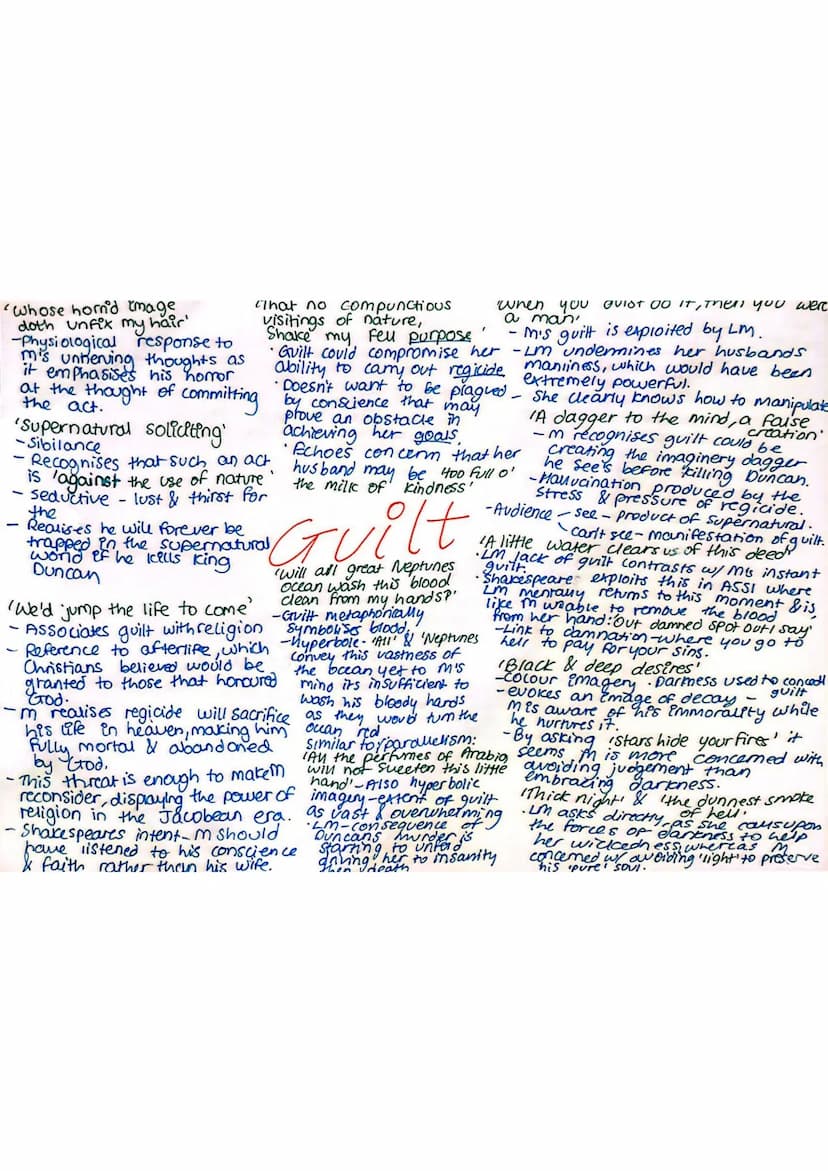 'Whose horrid image
doth unfix my hair'
- Physiological response to
M's unnerving thoughts as
it emphasises his horror
at the thought of committing
the act.
'Supernatural soliciting'
- Sibilance
- Recognises that such an act
is 'against the use of nature'
- Seductive - lust & thirst for
the
- Realises he will forever be
trapped in the supernatural
world if he kills King
Duncan
'We'd jump the life to come'
- Associates guilt with religion
- Reference to afterlife, which
Christians believed would be
granted to those that honoured
God.
- M realises regicide will sacrifice
his life in heaven, making him
fully mortal & abandoned
by God.
- This threat is enough to make M
reconsider, displaying the power of
religion in the Jacobean era.
- Shakespeares intent - M should
have listened to his conscience
& faith rather than his wife.
'That no compunctious
visitings of nature,
Shake my fell purpose'
· Guilt could compromise her
ability to carry out regicide
· Doesn't want to be plagued
by conscience that may
prove an obstacle in
achieving her goals.
· Echoes concern that her
husband may be 'too full o'
the milk of kindness'
Guilt
'Will all great Neptunes
ocean wash this blood
clean from my hands?'
- Guilt metaphorically
symbolises blood,
- Hyperbole - 'All' & 'Neptunes
convey this vastness of
the ocean yet to M's
mind its insufficient to
wash his bloody hands
as they would turn the
ocean red
Similar to/parallelism:
'All the perfumes of Arabia
will not sweeten this little
hand' - Also hyperbolic
imagery - extent of guilt
as vast & overwhelming
· LM - consequence of
Duncans murder is
starting to unfold
driving her to insanity
then death
When you durst do it, then you were
a man'
- M's guilt is exploited by LM.
- LM undermines her husbands
manliness, which would have been
extremely powerful.
- She clearly knows how to manipulate
'A dagger to the mind, a false
creation'
- M recognises guilt could be
creating the imaginery dagger
he see's before killing Duncan.
- Hallucination produced by the
stress & pressure of regicide.
- Audience - see - product of supernatural.
can't see - manifestation of guilt.
'A little water clears us of this deed'
· LM lack of guilt contrasts w/ M's instant
guilt.
· Shakespeare exploits this in A5S1 where
LM mentally returns to this moment & is,
like M unable to remove the blood
from her hand: 'Out damned spot out I say'
- Link to damnation - where you go to
hell to pay for your sins.
'Black & deep desires'
- Colour imagery · Darkness used to conceal
guilt
- evokes an image of decay -
M is aware of his immorality while
he nurtures it.
- By asking 'stars hide your fires' it
seems M is more concerned with
avoiding judgement than
embracing darkness.
'Thick night' & 'the dunnest smoke
of hell'
· LM asks directly - as she calls upon
the forces of darkness to help
her wickedness, whereas M
concerned w/ avoiding 'light' to preserve
his 'pure' soul.